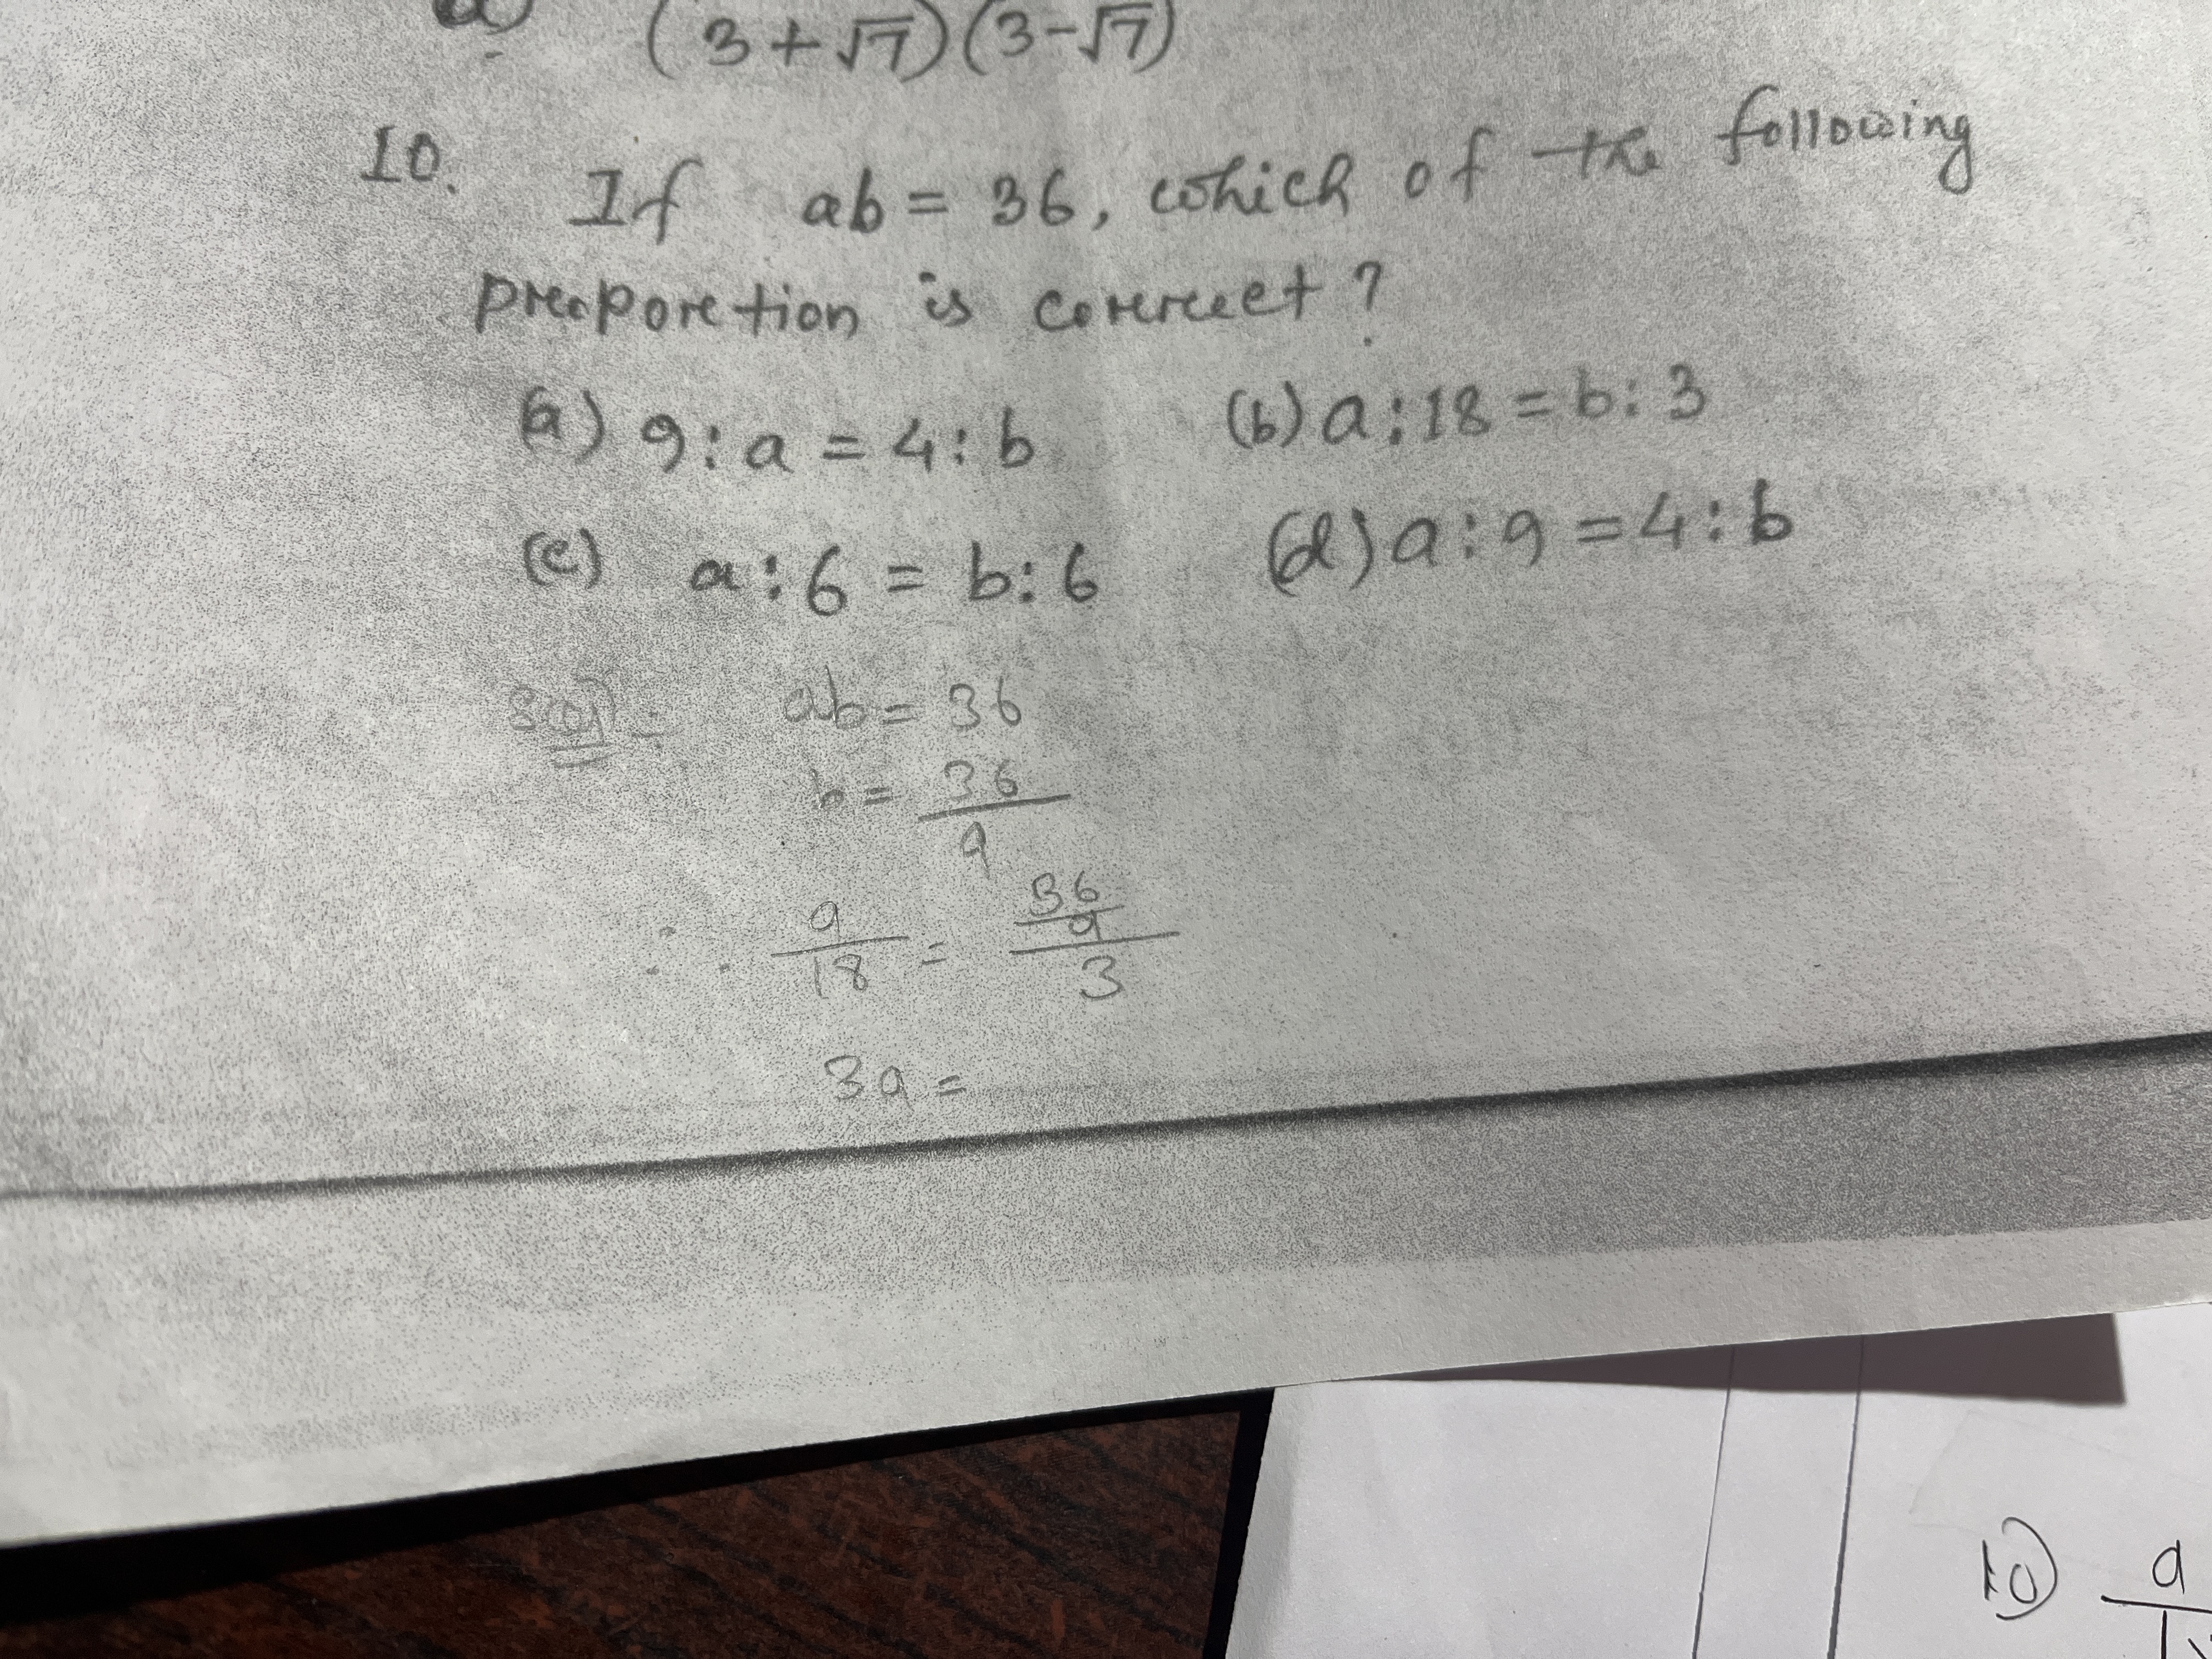 (3+√7)(3-√7)
10. If ab = 36, which of the following
proportion is correct?
(a) 9 : a = 4 : b (b) a : 18 = b : 3
(c) a : 6 = b : 6 (d) a : 9 = 4 : b
ab = 36
b = 36/a
∴ a/18 = 36/a/3
3a =
10) a